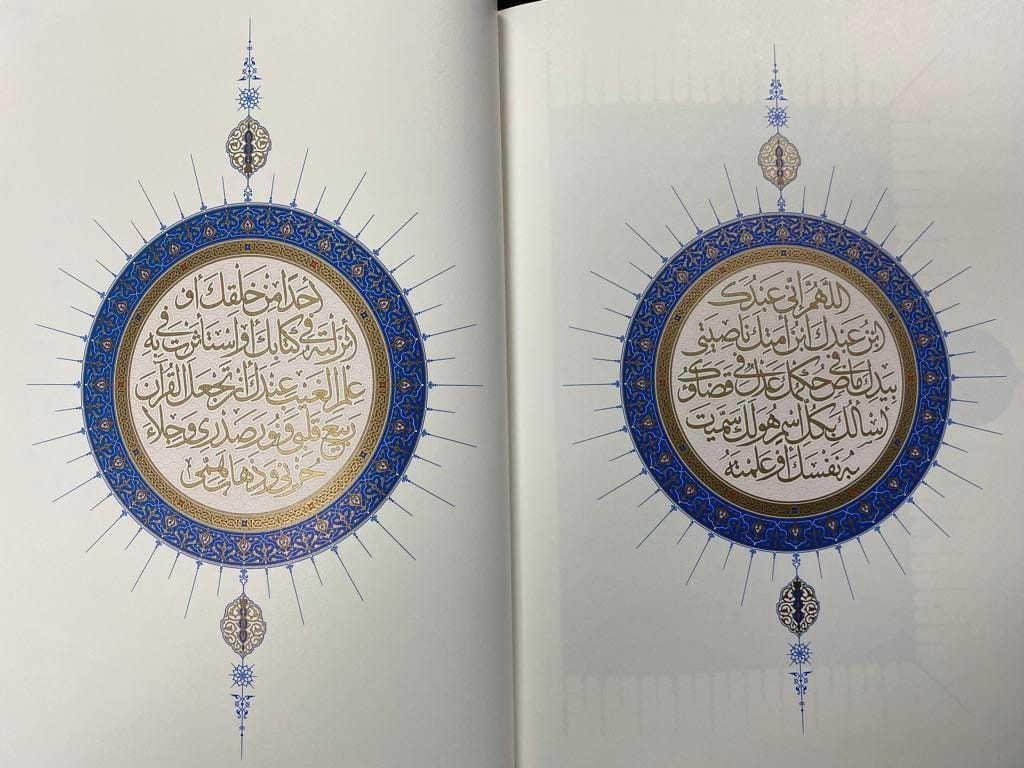 اللهم إني عبدك
ابن عبدك ابن أمتك ناصيتي
بيدك ماض في حكمك عدل في قضاؤك
أسألك بكل اسم هو لك سميت
به نفسك أو علمته
أحدا من خلقك أو
أنزلته في كتابك أو استأثرت به في
علم الغيب عندك أن تجعل القرآن
ربيع قلبي ونور صدري وجلاء
حزني وذهاب همي